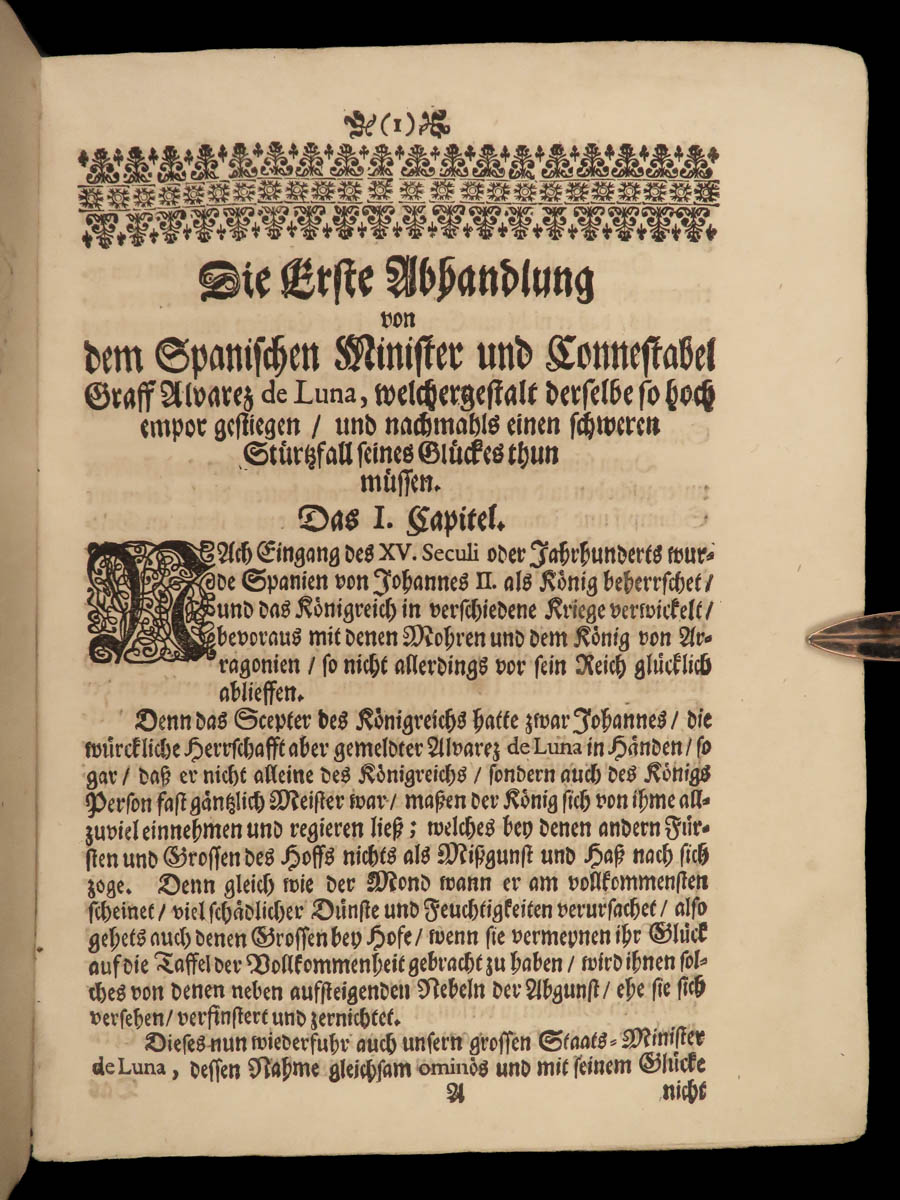 (1)
Die Erste Abhandlung
von
dem Spanischen Minister und Connestabel
Graff Alvarez de Luna, welchergestalt derselbe so hoch
empor gestiegen / und nachmahls einen schweren
Stürtzfall seines Glückes thun
müssen.
Das I. Capitel.
NAch Eingang des XV. Seculi oder Jahrhunderts wur-
de Spanien von Johannes II. als König beherrschet /
und das Königreich in verschiedene Kriege verwickelt /
bevoraus mit denen Mohren und dem König von Ar-
ragonien / so nicht allerdings vor sein Reich glücklich
ablieffen.
Denn das Scepter des Königreichs hatte zwar Johannes / die
würckliche Herrschafft aber gemeldter Alvarez de Luna in Händen / so
gar / daß er nicht alleine des Königreichs / sondern auch des Königs
Person fast gäntzlich Meister war / maßen der König sich von ihme all-
zuviel einnehmen und regieren ließ; welches bey denen andern Für-
sten und Grossen des Hoffs nichts als Mißgunst und Haß nach sich
zoge. Denn gleich wie der Mond wann er am vollkommensten
scheinet / viel schädlicher Dünste und Feuchtigkeiten verursachet / also
gehets auch denen Grossen bey Hofe / wenn sie vermeynen ihr Glück
auf die Taffel der Vollkommenheit gebracht zu haben / wird ihnen sol-
ches von denen neben aufsteigenden Nebeln der Abgunst / ehe sie sich
versehen / verfinstert und zernichtet.
Dieses nun wiederfuhr auch unsern grossen Staats-Minister
de Luna, dessen Nahme gleichsam ominös und mit seinem Glücke
A nicht